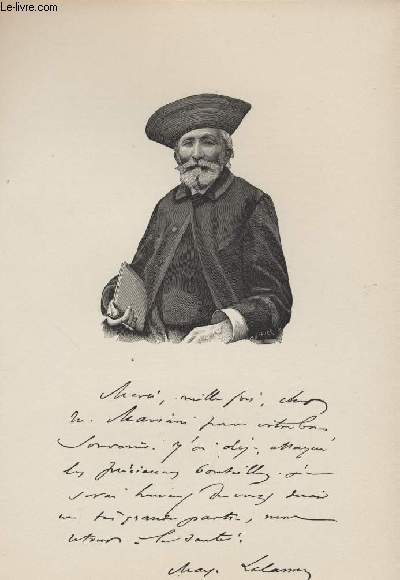 Le-livre.com
Merci, mille fois, cher
M. Mariani pour votre bon
souvenir. J'ai déjà attaqué
les précieuses bouteilles
serai heureux de vous
une très grande partie,
retour à la santé.
Max. Lalanne